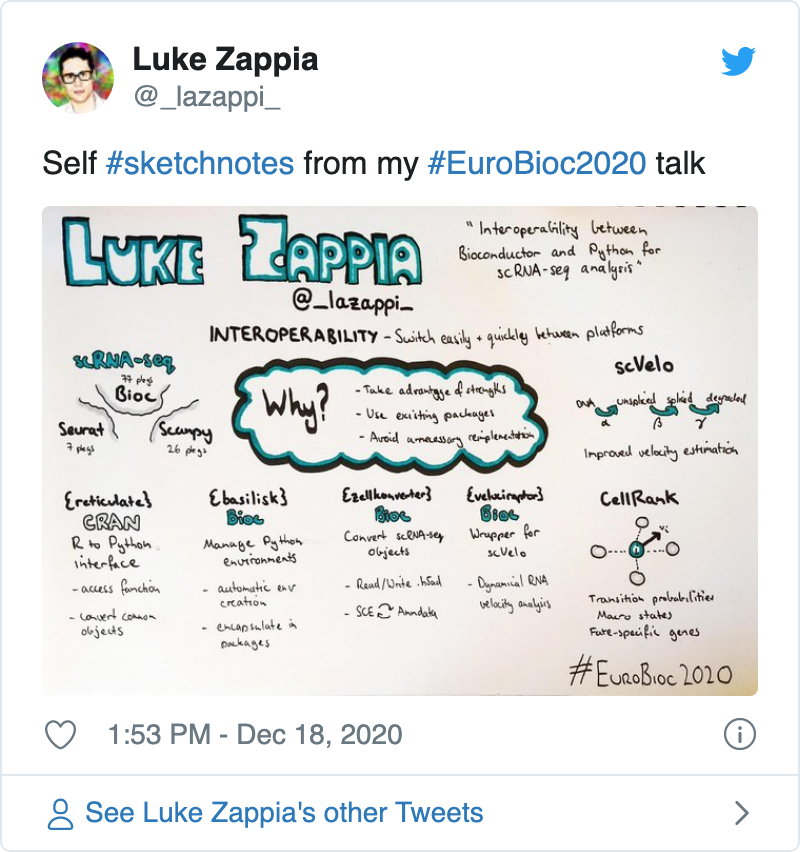 Luke Zappia
@_lazappi_
Self #sketchnotes from my #EuroBioc2020 talk
LUKE ZAPPIA
@_lazappi_
"Interoperability between
Bioconductor and Python for
scRNA-seq analysis"
INTEROPERABILITY - Switch easily + quickly between platforms
scRNA-seq
77 pkgs
Bioc
Seurat
7 pkgs
Scanpy
26 pkgs
Why?
- Take advantage of strengths
- Use existing packages
- Avoid unnecessary reimplementation
scVelo
DNA unspliced spliced degraded
α β γ
Improved velocity estimation
{reticulate}
CRAN
R to Python
interface
- access function
- convert common
objects
{basilisk}
Bioc
Manage Python
environments
- automatic env
creation
- encapsulate in
packages
{zellkonverter}
Bioc
Convert scRNA-seq
objects
- Read/Write .h5ad
- SCE Anndata
{velociraptor}
Bioc
Wrapper for
scVelo
- Dynamical RNA
velocity analysis
CellRank
Transition probabilities
Macro states
Fate-specific genes
#EuroBioc2020
1:53 PM - Dec 18, 2020
See Luke Zappia's other Tweets